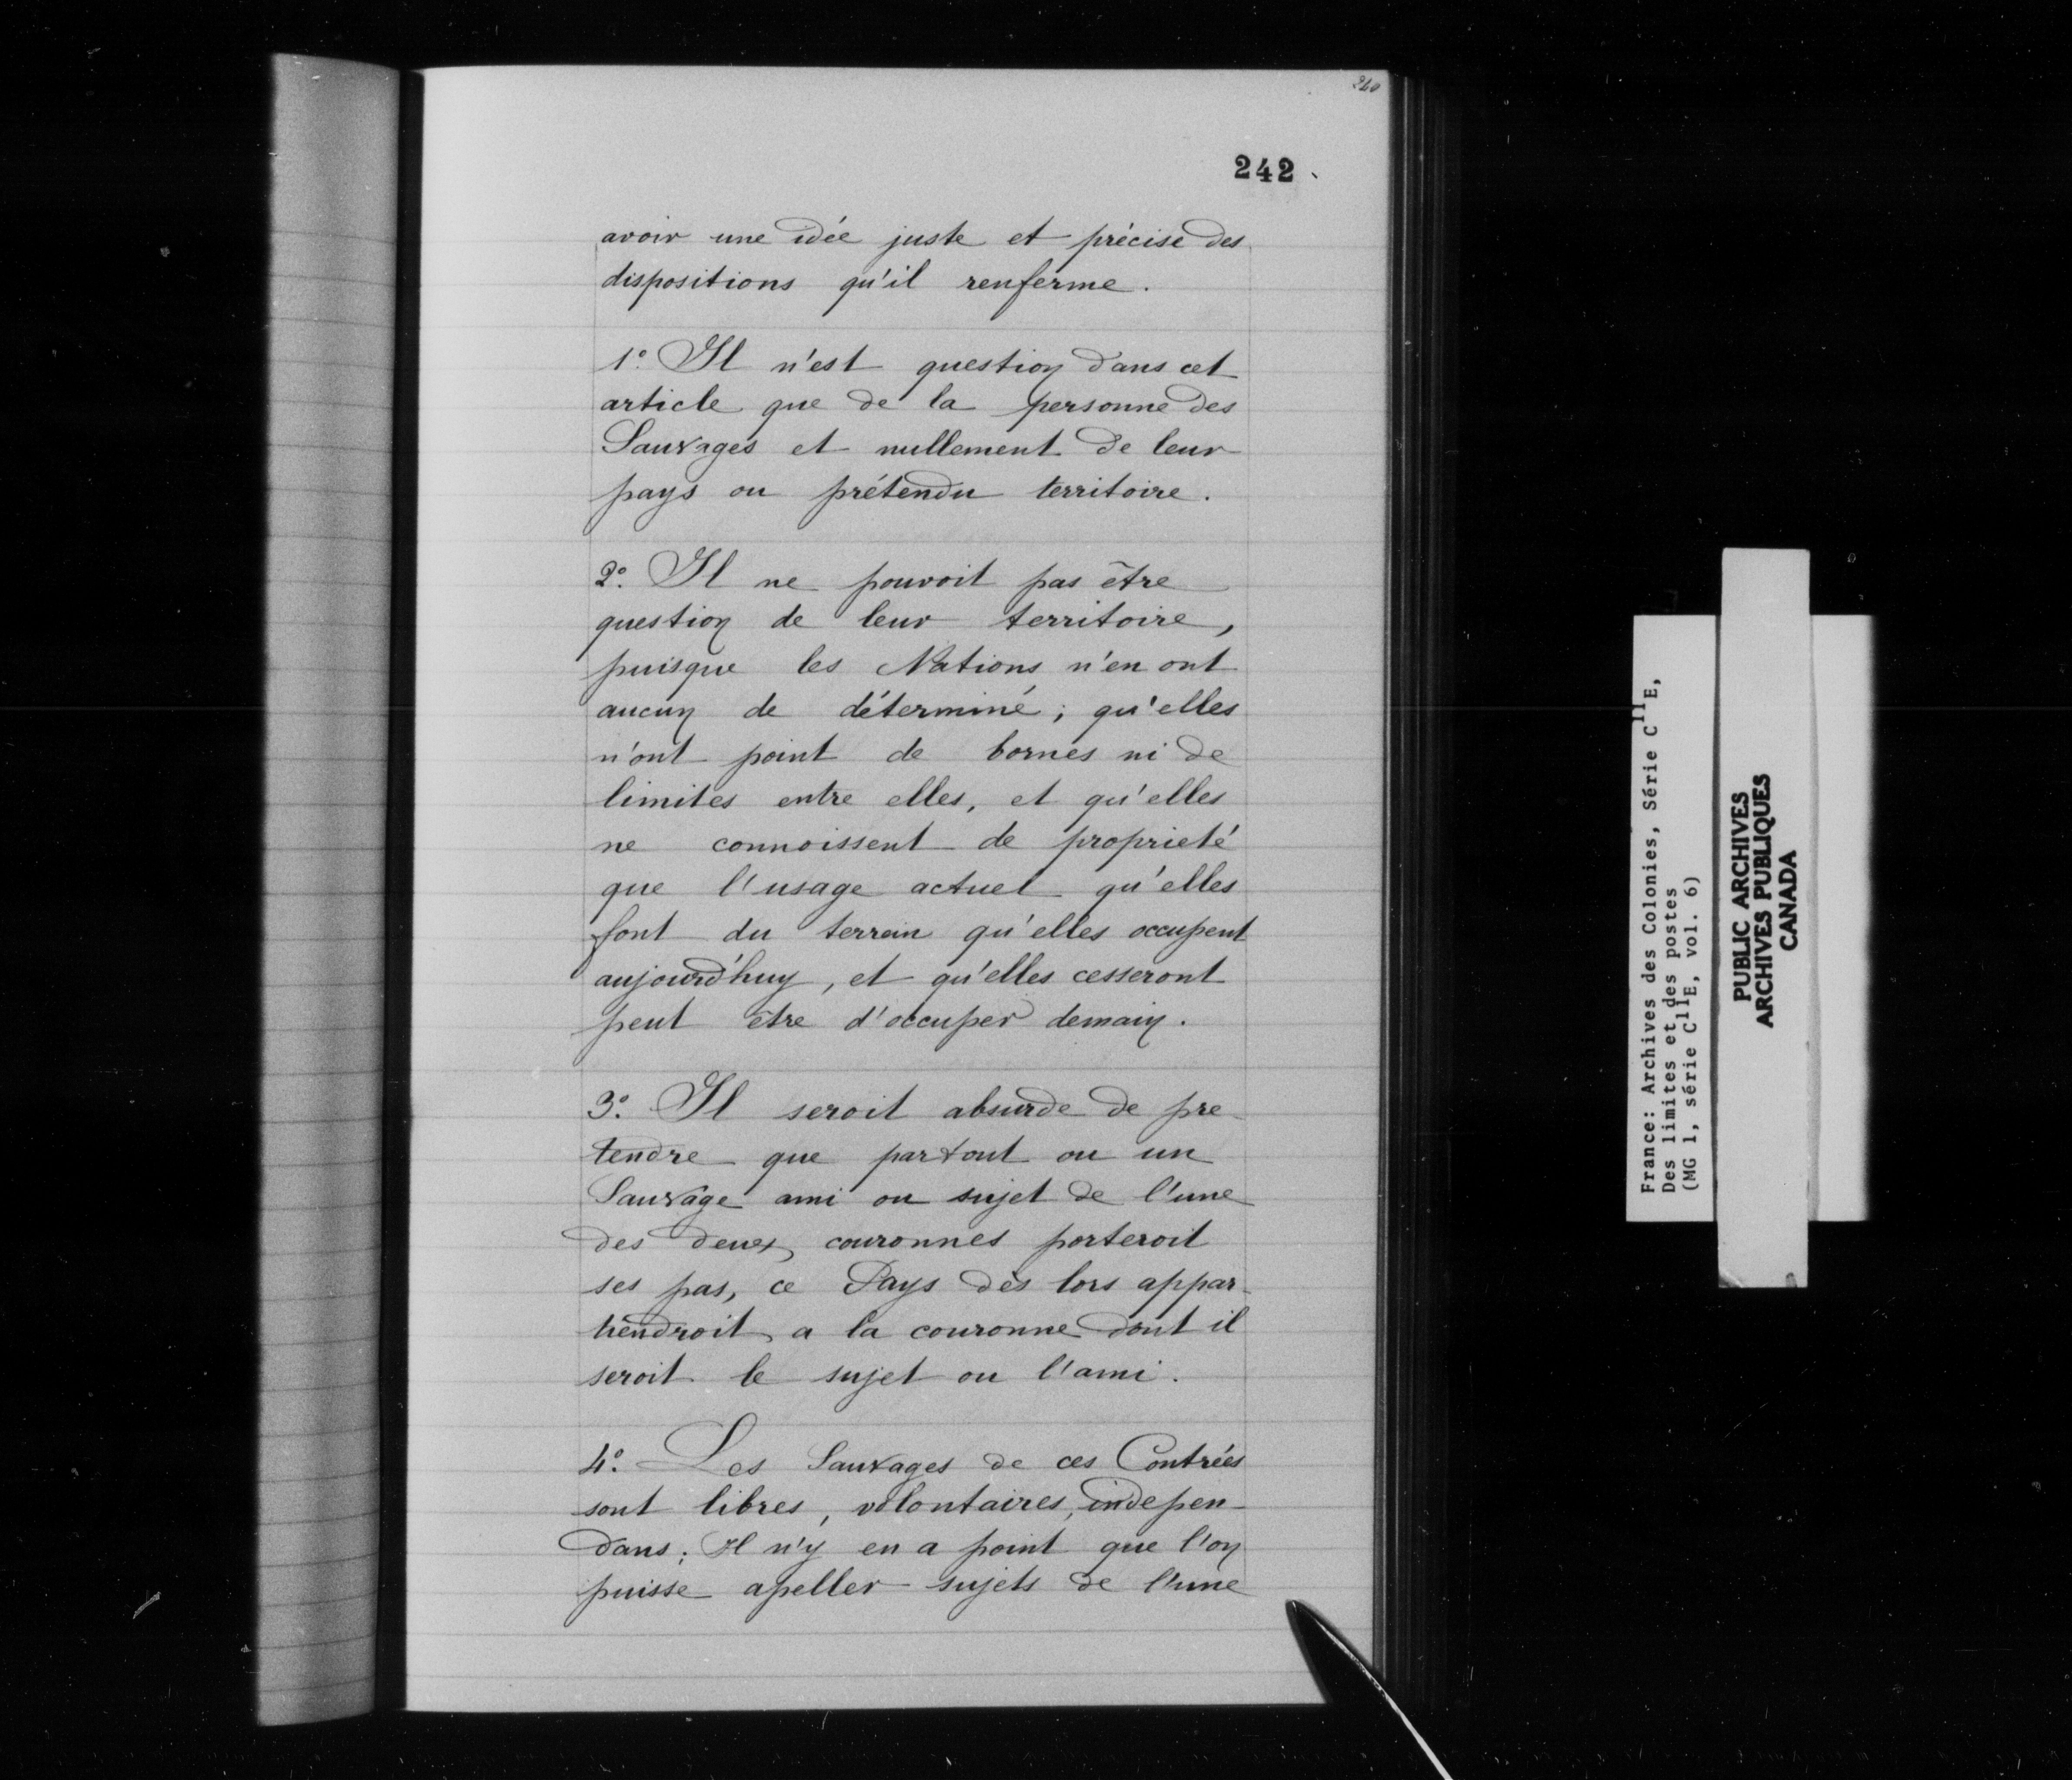 240
242
avoir une idée juste et précise des
dispositions qu'il renferme.
1º. Il n'est question dans cet
article que de la personne des
Sauvages et nullement de leur
pays ou prétendu territoire.
2º. Il ne pouvoit pas être
question de leur territoire,
puisque les Nations n'en ont
aucun de déterminé; qu'elles
n'ont point de bornes ni de
limites entre elles, et qu'elles
ne connoissent de proprieté
que l'usage actuel qu'elles
font du terrein qu'elles occupent
aujourd'huy, et qu'elles cesseront
peut être d'occuper demain.
3º. Il seroit absurde de pre
tendre que partout ou un
Sauvage ami ou sujet de l'une
des deux couronnes porteroit
ses pas, ce Pays dès lors appar-
tiendroit a la couronne dont il
seroit le sujet ou l'ami.
4º. Les Sauvages de ces Contrées
sont libres, volontaires, indepen-
dans; Il n'y en a point que l'on
puisse apeller sujets de l'une
France: Archives des Colonies, Série C11E,
Des limites et des postes
(MG 1, série C11E, vol. 6)
PUBLIC ARCHIVES
ARCHIVES PUBLIQUES
CANADA